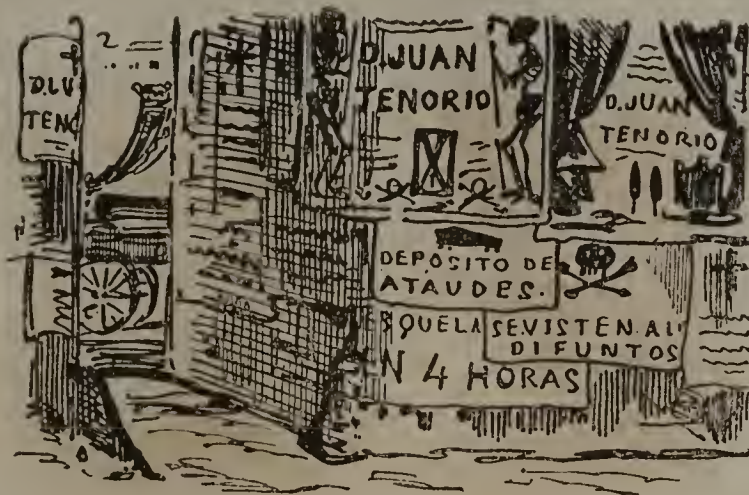 D.JUAN
TENORIO
D.JUAN
TENORIO
DEPOSITO DE
ATAUDES.
SEVISTEN AL
DIFUNTOS
N 4 HORAS